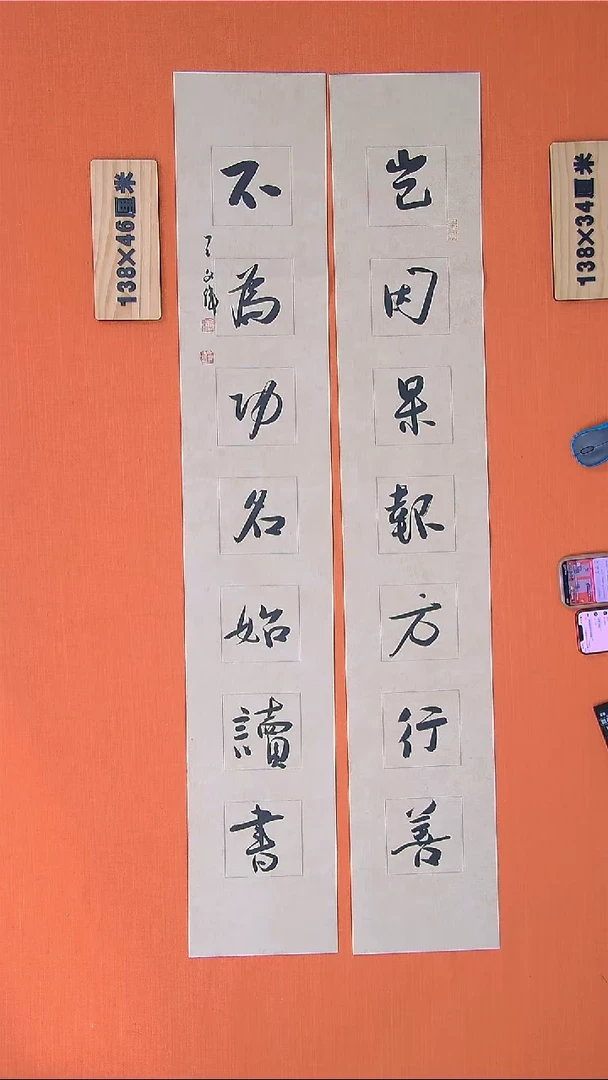 岂因果報方行善
不為功名始讀書
138×46厘米
138×34厘米